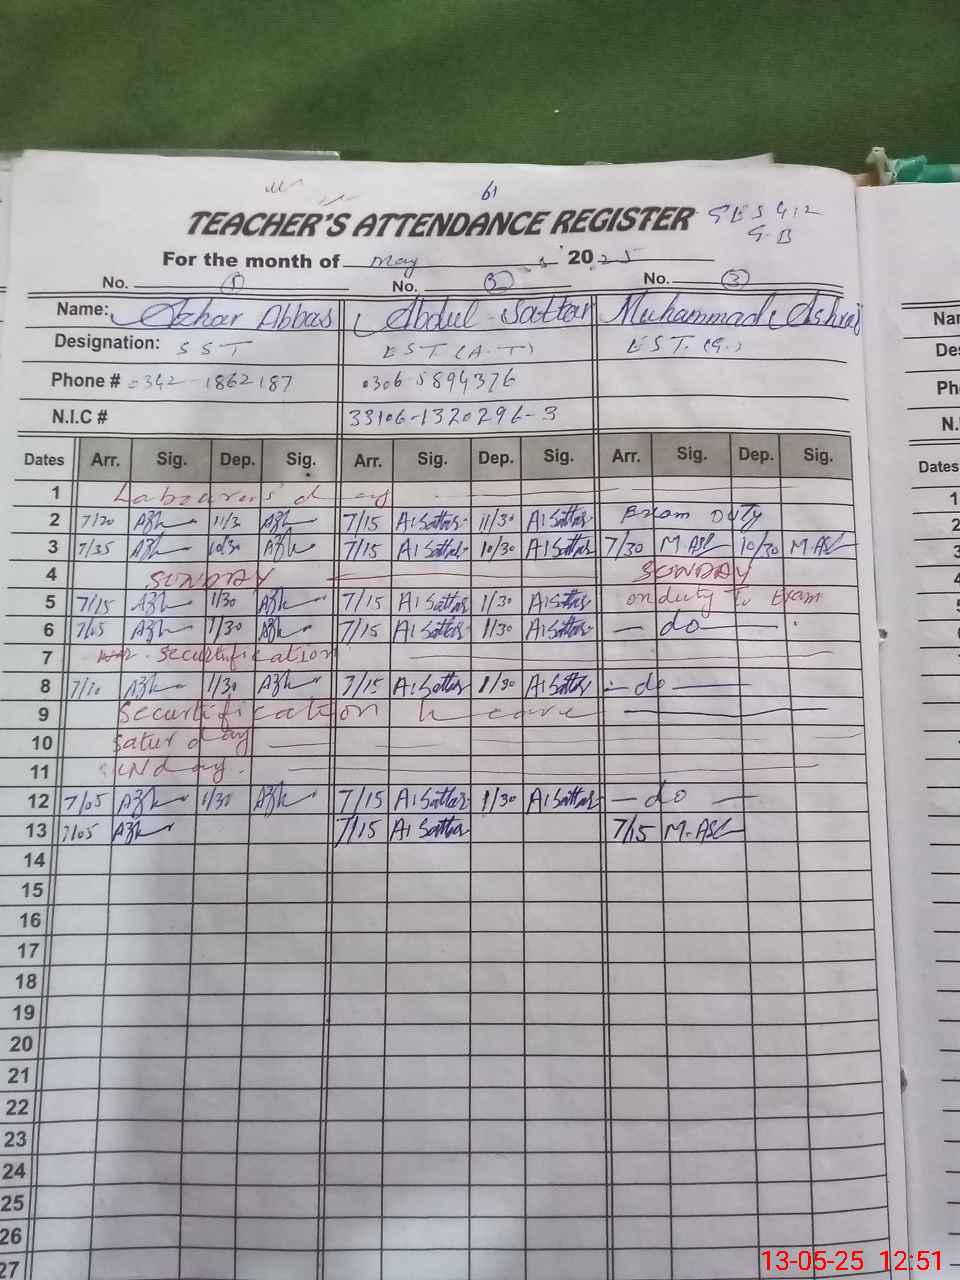 61
TEACHER'S ATTENDANCE REGISTER GES 412
G-B
For the month of May 2025
No. 1 No. 2 No. 3
Name: Azhar Abbas Abdul Sattar Muhammad Ashraf
Designation: SST EST (A.T) EST.(G.)
Phone # 0342-1862187 0306-5894376
N.I.C # 33106-1320296-3
Dates Arr. Sig. Dep. Sig. Arr. Sig. Dep. Sig. Arr. Sig. Dep. Sig.
1 Labourers day
2 7/20 Azh 11/30 Azh 7/15 A1Sattar 11/30 A1Sattar Exam Duty
3 7/35 Azh 10/30 Azh 7/15 A1Sattar 10/30 A1Sattar 7/30 M.ASC 10/30 M.ASC
4 SUNDAY SUNDAY
5 7/15 Azh 1/30 Azh 7/15 A1Sattar 1/30 A1Sattar on duty To Exam
6 7/05 Azh 1/30 Azh 7/15 A1Sattar 1/30 A1Sattar — do —
7 Securtification
8 7/10 Azh 1/30 Azh 7/15 A1Sattar 1/30 A1Sattar — do —
9 Securtification
10 Saturday
11 SUNday.
12 7/05 Azh 1/30 Azh 7/15 A1Sattar 1/30 A1Sattar — do —
13 7/05 Azh 7/15 A1Sattar 7/15 M.ASC
14
15
16
17
18
19
20
21
22
23
24
25
26
27
Dates
13-05-25 12:51